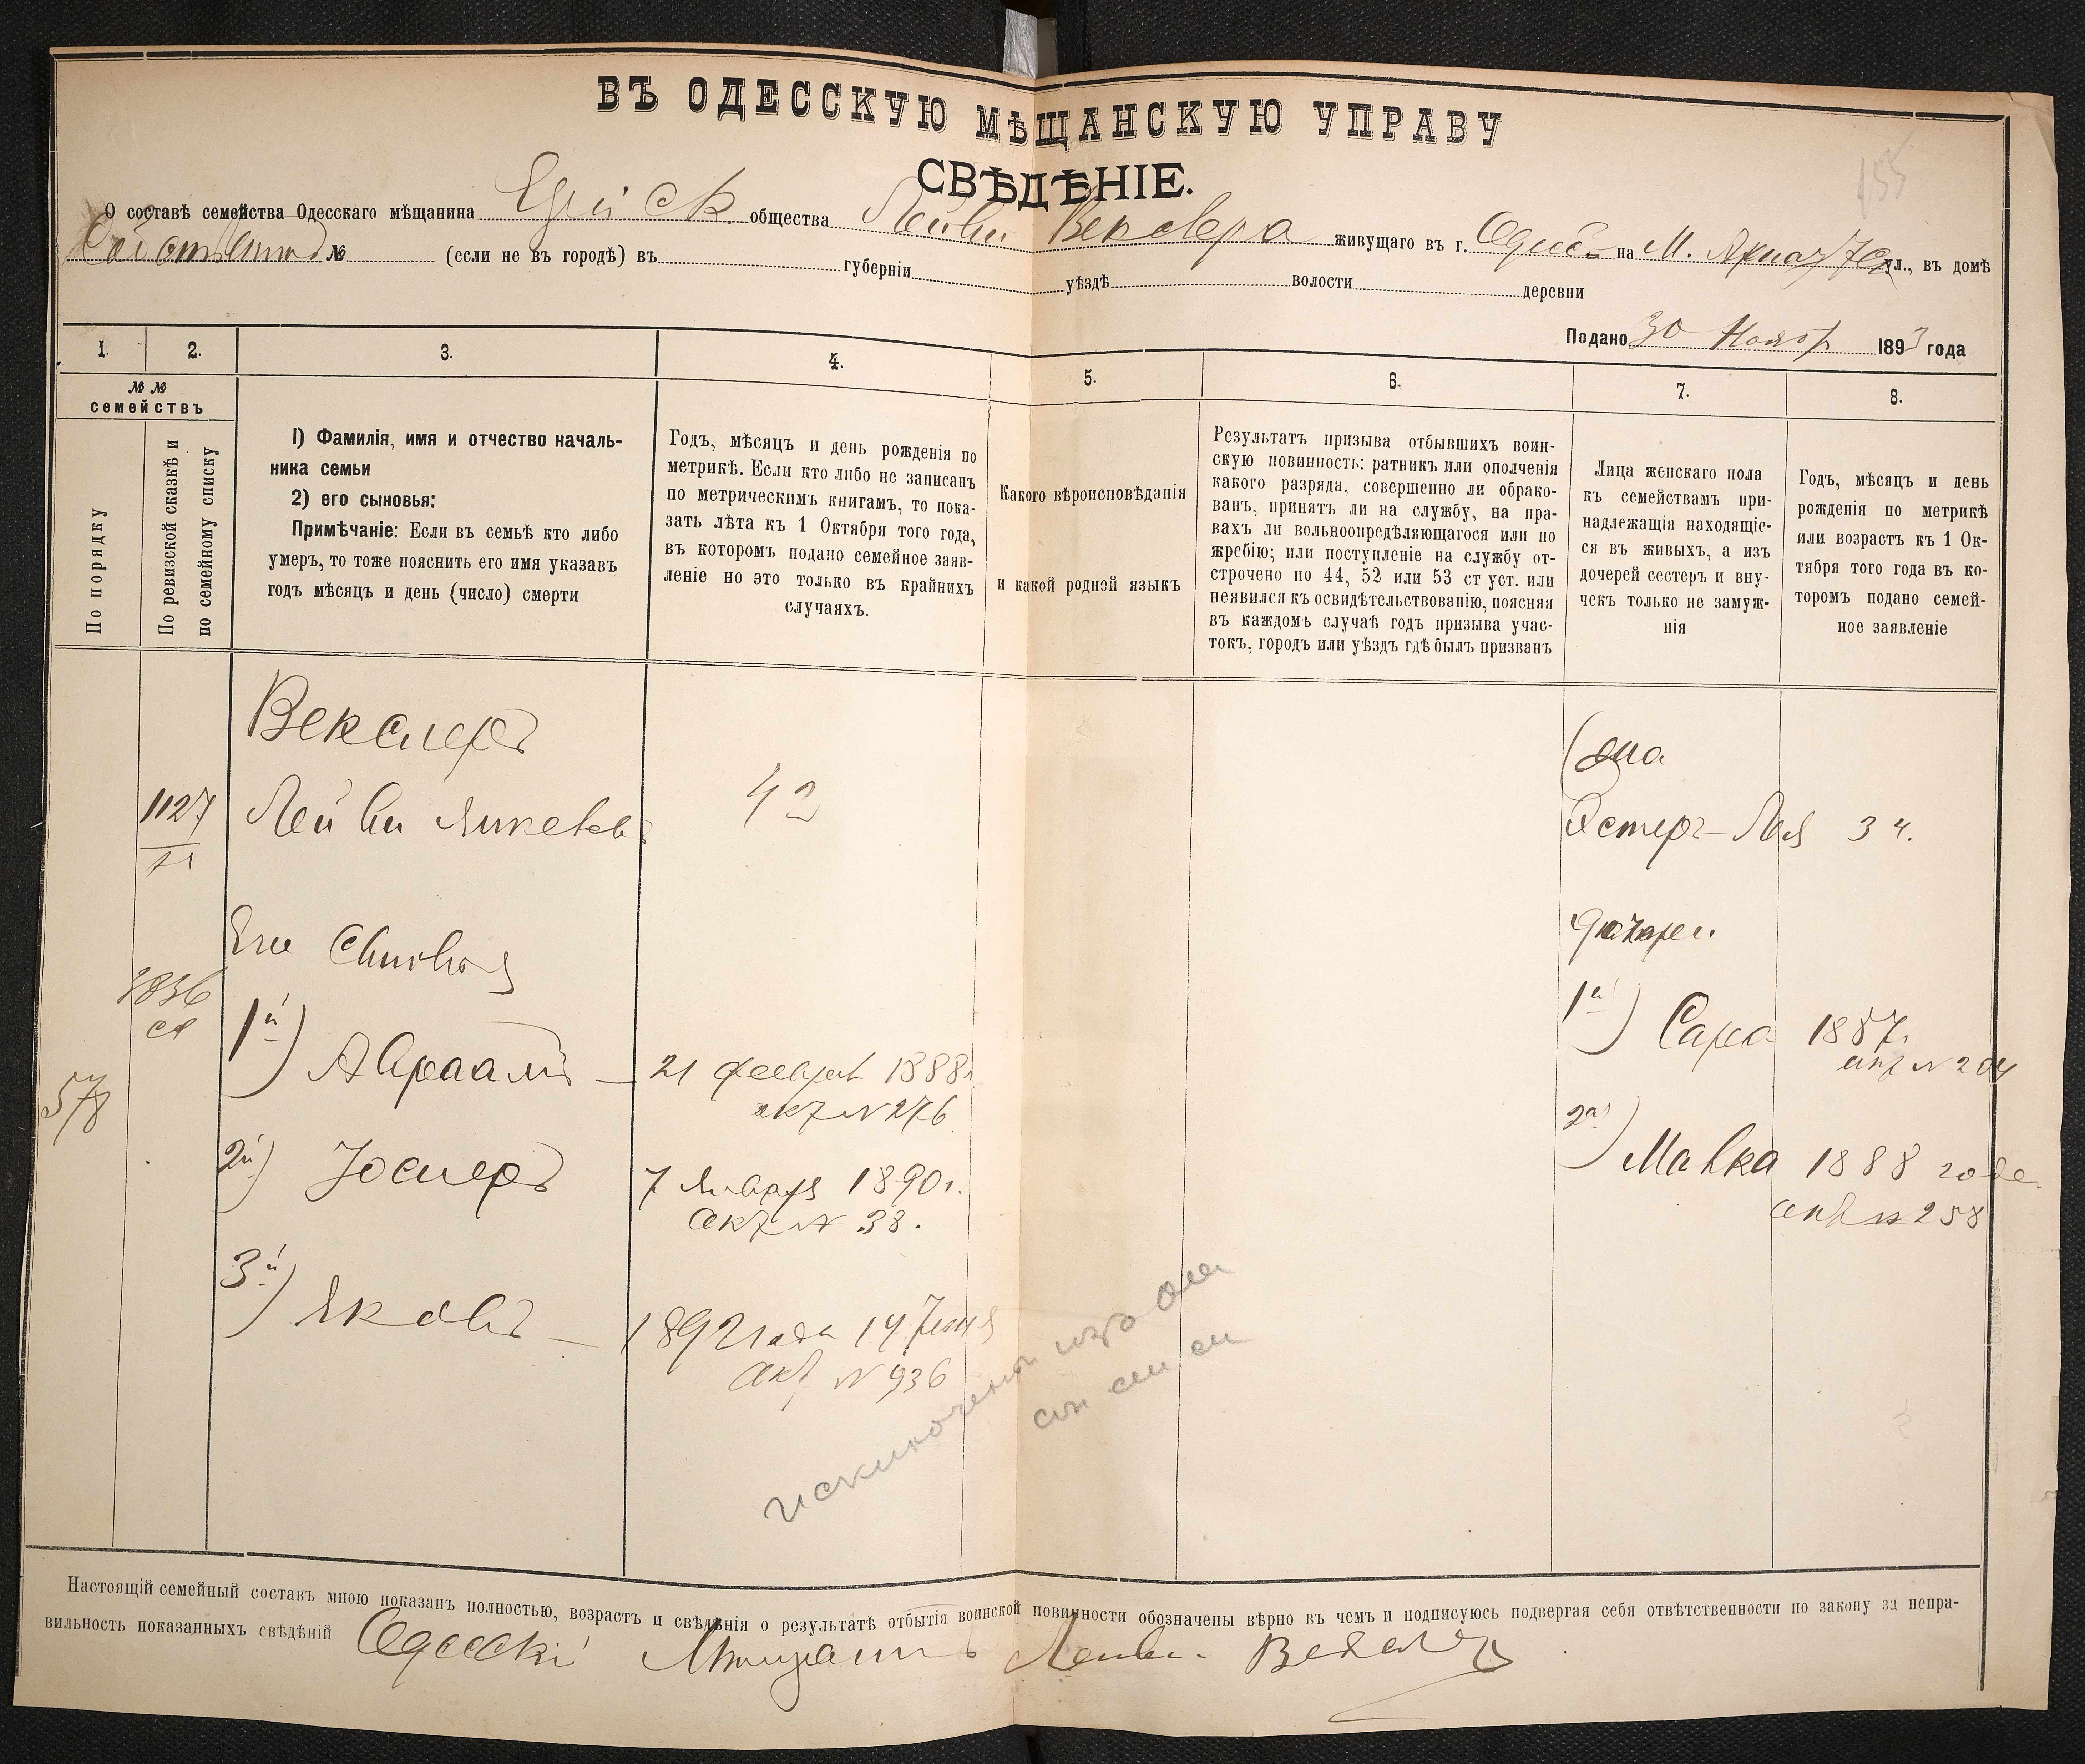 155
ВЪ ОДЕССКУЮ МѢЩАНСКУЮ УПРАВУ
СВѢДѢНІЕ.
О составѣ семейства Одесскаго мѣщанина общества Лейви Векслера живущаго въ г. Одессѣ на М. Арнаут ул., въ домѣ
№ (если не въ городѣ) въ губерніи уѣздѣ волости деревни
Подано 30 Ноябр 1893 года
1. 2. 3. 4. 5. 6. 7. 8.
№ № семействъ
По порядку
По ревизской сказкѣ и
по семейному списку
1) Фамилія, имя и отчество началь-
ника семьи
2) его сыновья:
Примѣчаніе: Если въ семьѣ кто либо
умеръ, то тоже пояснить его имя указавъ
годъ мѣсяцъ и день (число) смерти
Годъ, мѣсяцъ и день рожденія по
метрикѣ. Если кто либо не записанъ
по метрическимъ книгамъ, то пока-
зать лѣта къ 1 Октября того года,
въ которомъ подано семейное заяв-
леніе но это только въ крайнихъ
случаяхъ.
Какого вѣроисповѣданія
и какой родной языкъ
Результатъ призыва отбывшихъ воин-
скую повинность: ратникъ или ополченія
какого разряда, совершенно ли обрако-
ванъ, принятъ ли на службу, на пра-
вахъ ли вольноопредѣляющагося или по
жребію; или поступленіе на службу от-
строчено по 44, 52 или 53 ст уст. или
неявился къ освидѣтельствованію, поясняя
въ каждомъ случаѣ годъ призыва учас-
токъ, городъ или уѣздъ гдѣ былъ призванъ
Лица женскаго пола
къ семействамъ при-
надлежащія находящіе-
ся въ живыхъ, а изъ
дочерей сестеръ и вну-
чекъ только не замуж-
нія
Годъ, мѣсяцъ и день
рожденія по метрикѣ
или возрастъ къ 1 Ок-
тября того года въ ко-
торомъ подано семей-
ное заявленіе
Векслеръ
1127 Лейви Янкелевъ 42
Эстеръ-Лея 34.
Его Сыновья
1й) Авраамъ — 21 феврал 1888г
акт N 276
578
2й) Іосифъ 7 Января 1890г.
акт N 38.
3й) Яковъ — 1892 года 14
акт N 936
дочери
1я) Сара 1887г.
акт N 204
2я) Малка 1888 года
акт N 258
Настоящій семейный составъ мною показанъ полностью, возрастъ и свѣдѣнія о результатѣ отбытія воинской повинности обозначены вѣрно въ чемъ и подписуюсь подвергая себя отвѣтственности по закону за непра-
вильность показанныхъ свѣдѣній Одесскій Мѣщанинъ Лейви